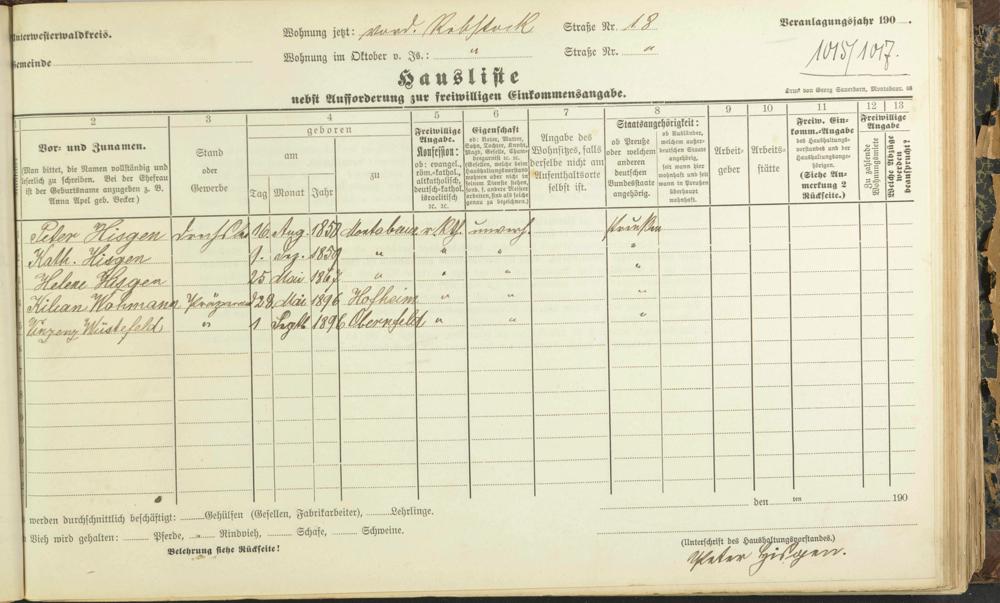 Unterwesterwaldkreis.
Wohnung jetzt: vord. Rebstock Straße Nr. 18
Veranlagungsjahr 190 .
Gemeinde
Wohnung im Oktober v. Js.: " Straße Nr. "
1015/1017.
Hausliste
Druck von Georg Sauerborn, Montabaur.
nebst Aufforderung zur freiwilligen Einkommensangabe.
2 3 4 5 6 7 8 9 10 11 12 13
Vor- und Zunamen.
(Man bittet, die Namen vollständig und
leserlich zu schreiben. Bei der Ehefrau
ist der Geburtsname anzugeben z. B.
Anna Apel geb. Becker)
Stand
oder
Gewerbe
geboren
am
zu
Tag Monat Jahr
Freiwillige
Angabe.
Konfession:
ob: evangel.,
röm.-kathol.,
altkatholisch,
deutsch-kathol.
israelitisch
ꝛc. ꝛc.
Eigenschaft
ob: Vater, Mutter,
Sohn, Tochter, Knecht,
Magd, Geselle,
Angabe des
Wohnsitzes, falls
derselbe nicht am
Aufenthaltsorte
selbst ist.
Staatsangehörigkeit:
ob Preuße
oder welchem
anderen
deutschen
Bundesstaate
angehörig.
ob Ausländer,
welchem außer-
deutschen Staate
angehörig,
seit wann hier
wohnhaft und seit
wann in Preußen
überhaupt
wohnhaft.
Arbeit-
geber
Arbeits-
stätte
Freiw. Ein-
komm.-Angabe
des Haushaltungs-
vorstandes und der
Haushaltungsange-
hörigen.
(Siehe An-
merkung 2
Rückseite.)
Freiwillige
Angabe
Zu zahlende
Wohnungsmiete
Welche Abzüge
werden
beansprucht?
Peter Hisgen 16. Aug. Montabaur r. Kth. Preußen
Kath. Hisgen 1. 1859 " " " "
Helene Hisgen 25 Mai 1867 " " " "
Kilian 28. Mai 1896 Hofheim " " "
Vinzenz Wüstefeld " 1 Septb. 1896 Obernfeld " " "
werden durchschnittlich beschäftigt: Gehülfen (Gesellen, Fabrikarbeiter), Lehrlinge.
den ten 190
Vieh wird gehalten: Pferde, " Rindvieh, Schafe, Schweine.
Belehrung siehe Rückseite!
(Unterschrift des Haushaltungsvorstandes.)
Peter Hisgen.